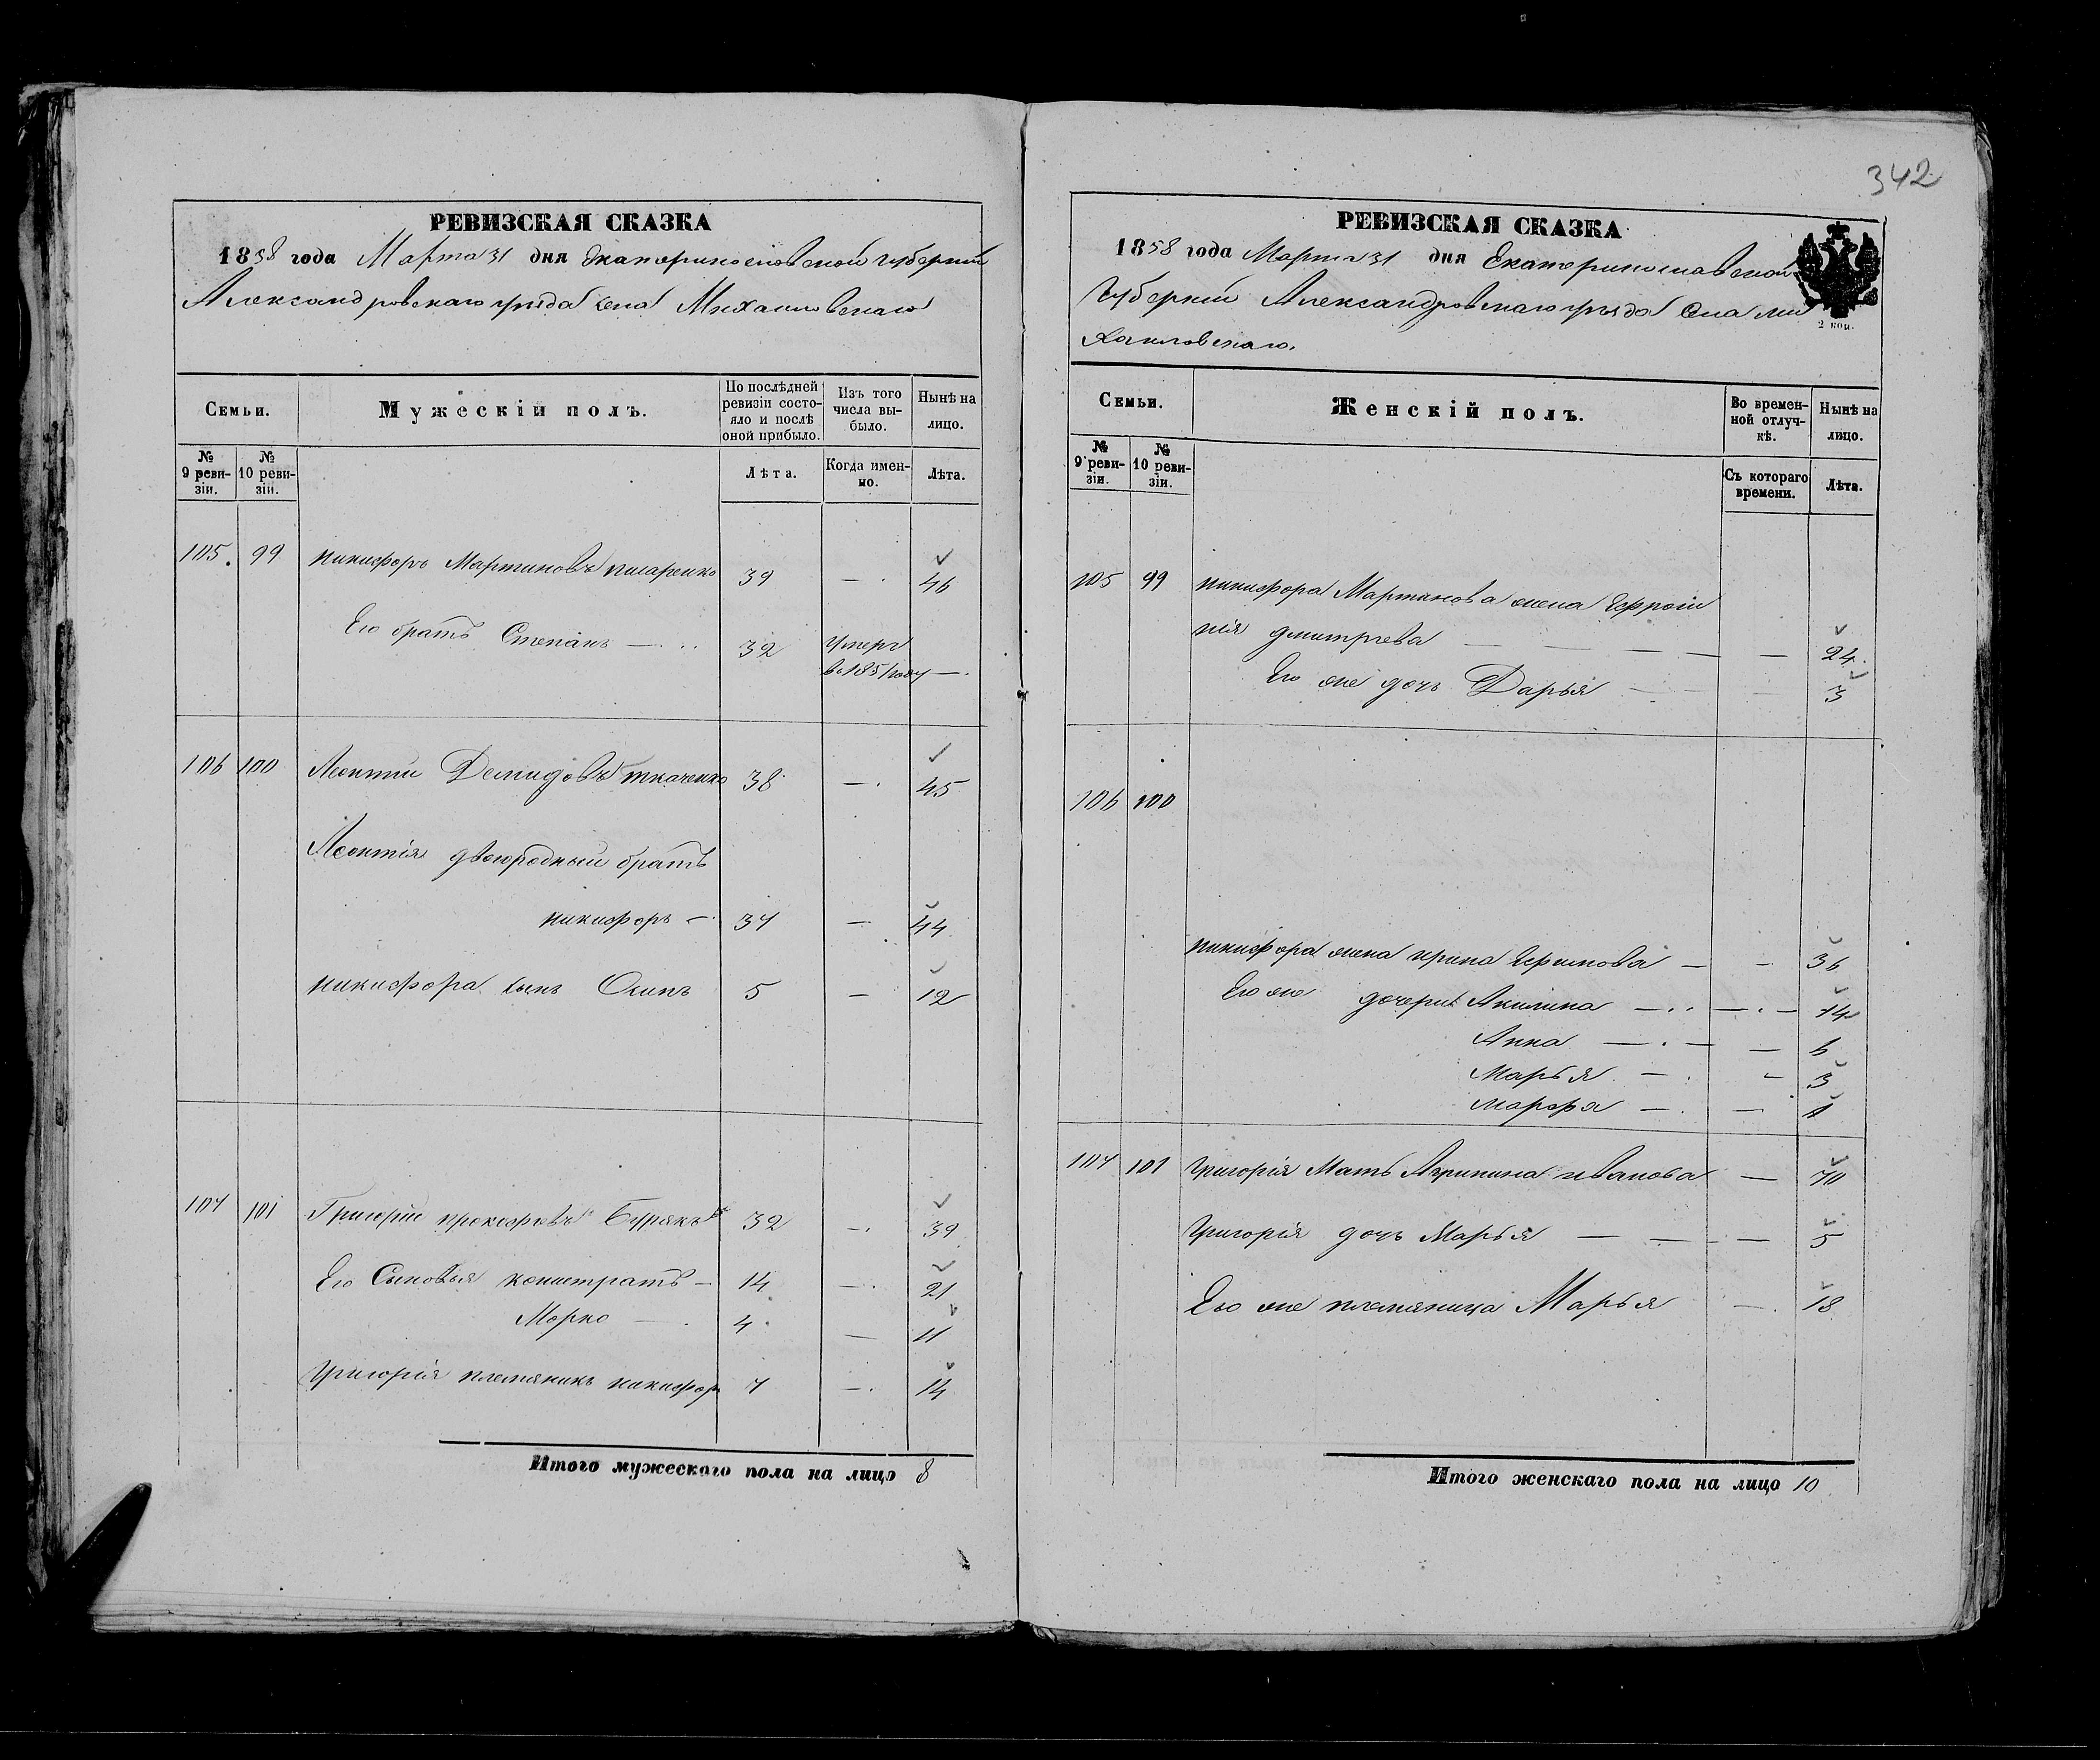 342
РЕВИЗСКАЯ СКАЗКА
1858 года Марта 31 дня Екатеринославской губернии
Александровскаго уезда села Михайловскаго
Семьи.
Мужескій полъ.
По послѣдней ревизіи состояло и послѣ оной прибыло.
Изъ того числа выбыло.
Нынѣ на лицо.
№ 9 ревизіи.
№ 10 ревизіи.
Лѣта.
Когда именно.
Лѣта.
105. 99 никифоръ Мартиновъ писаренко 39 — 46
Его братъ Степанъ — 32 умеръ
в 1851 году —
106 100 Леонтий Демидовъ ткаченко 38 — 45
Леонтія двоюродный братъ
никифоръ — 37 — 44
никифора сынъ Осипъ 5 — 12
107 101 Григорий прокофиевъ Бурякъ 32 — 39
Его Сыновья калистратъ — 14 — 21
Марко — 4 — 11
Григорія племяникъ никифор 7 — 14
Итого мужескаго пола на лицо 8
РЕВИЗСКАЯ СКАЗКА
1858 года Марта 31 дня Екатеринославской
Губернии Александровскаго уезда Села ми
хаиловскаго.
2 коп.
Семьи.
Женскій полъ.
Во временной отлучкѣ.
Нынѣ на лицо.
№ 9 ревизіи.
№ 10 ревизіи.
Съ котораго времени.
Лѣта.
105 99 никифора Мартинова жена Ефроси
нія дмитрева — 24.
Его же дочь Дарья — 3
106 100
никифора жена ирина Ефимова — 36
Его же дочери Акилина — 14
Анна — 6
Марья — 3
марфа — 1
107 101 Григорія Мать Агрипина иванова — 70
Григорія дочь Марья — 5
Его же племяница Марья — 18
Итого женскаго пола на лицо 10